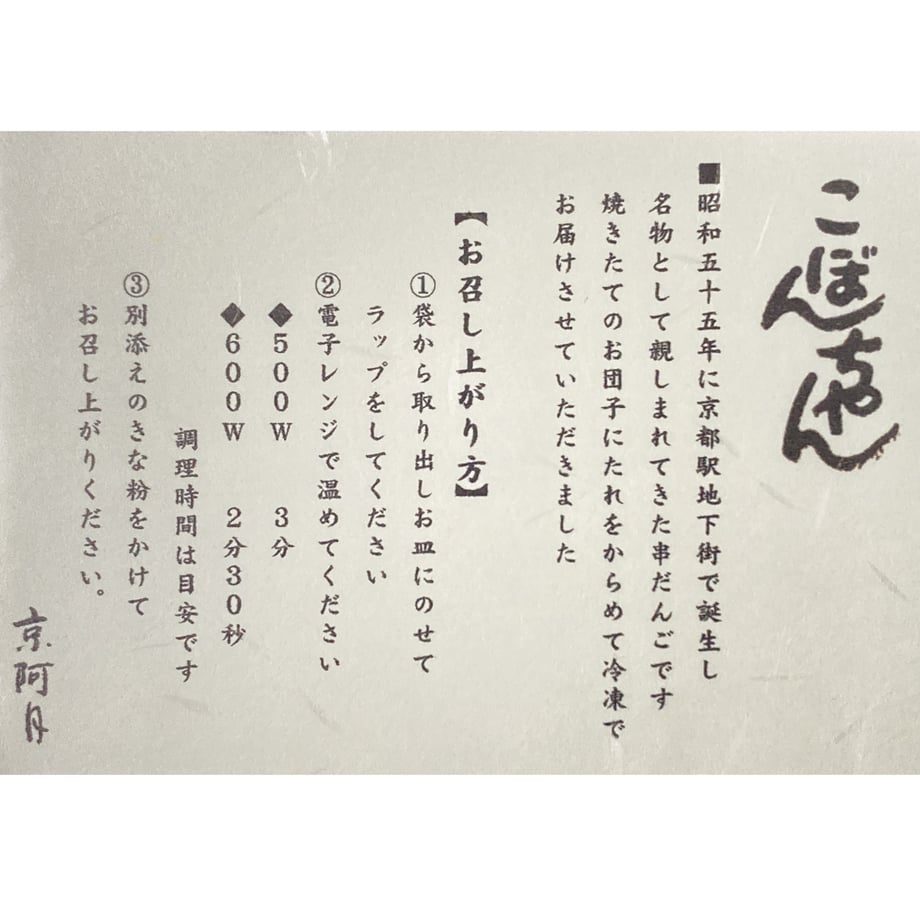 こぼんちゃん
■昭和五十五年に京都駅地下街で誕生し
名物として親しまれてきた串だんごです
焼きたてのお団子にたれをからめて冷凍で
お届けさせていただきました
【お召し上がり方】
①袋から取り出しお皿にのせて
ラップをしてください
②電子レンジで温めてください
◆500W 3分
◆600W 2分30秒
調理時間は目安です
③別添えのきな粉をかけて
お召し上がりください。
京阿月